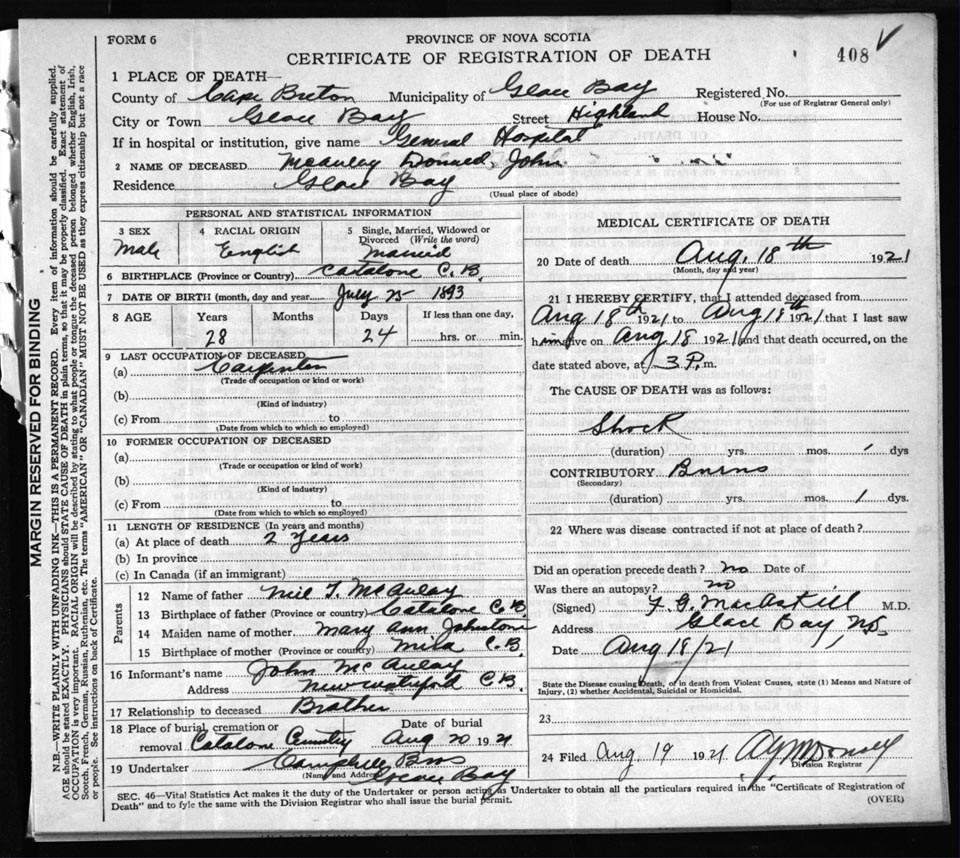 FORM 6
PROVINCE OF NOVA SCOTIA
CERTIFICATE OF REGISTRATION OF DEATH
408
1 PLACE OF DEATH—
County of Cape Breton Municipality of Glace Bay Registered No.
(For use of Registrar General only)
City or Town Glace Bay Street Highland House No.
If in hospital or institution, give name General Hospital
2 NAME OF DECEASED McAuley Donald, John
Residence Glace Bay
(Usual place of abode)
PERSONAL AND STATISTICAL INFORMATION
3 SEX 4 RACIAL ORIGIN 5 Single, Married, Widowed or Divorced (Write the word)
Male English Married
6 BIRTHPLACE (Province or Country) Catalone C.B.
7 DATE OF BIRTH (month, day and year) July 25 1893
8 AGE Years Months Days If less than one day,
28 24 hrs. or min.
9 LAST OCCUPATION OF DECEASED
(a) Carpenter
(Trade of occupation or kind or work)
(b)
(Kind of industry)
(c) From to
(Date from which to which so employed)
10 FORMER OCCUPATION OF DECEASED
(a)
(Trade of occupation or kind or work)
(b)
(Kind of industry)
(c) From to
(Date from which to which so employed)
11 LENGTH OF RESIDENCE (In years and months)
(a) At place of death 2 Years
(b) In province
(c) In Canada (if an immigrant)
Parents
12 Name of father Neil T. McAulay
13 Birthplace of father (Province or country) Catalone C.B.
14 Maiden name of mother Mary Ann Johnstone
15 Birthplace of mother (Province or country) Mira C.B.
16 Informant's name John McAulay
Address New Waterford C.B.
17 Relationship to deceased Brother
18 Place of burial, cremation or removal Catalone Date of burial Aug 20 1921
19 Undertaker Campbell Bros
(Name and Address) Glace Bay
MEDICAL CERTIFICATE OF DEATH
20 Date of death Aug. 18th 1921
(Month, day and year)
21 I HEREBY CERTIFY, that I attended deceased from
Aug 18th 1921 to Aug 18th 1921 that I last saw
him alive on Aug 18 1921 and that death occurred, on the
date stated above, at 3 P. m.
The CAUSE OF DEATH was as follows:
Shock
(duration) yrs. mos. 1 dys
CONTRIBUTORY Burns
(Secondary)
(duration) yrs. mos. 1 dys.
22 Where was disease contracted if not at place of death?
Did an operation precede death? no Date of
Was there an autopsy? no
(Signed) F. G. MacAskill M.D.
Address Glace Bay, N.S.
Date Aug 18/21
State the Disease causing Death, or in death from Violent Causes, state (1) Means and Nature of
Injury, (2) whether Accidental, Suicidal or Homicidal.
23
24 Filed Aug 19 1921
Division Registrar
SEC. 46—Vital Statistics Act makes it the duty of the Undertaker or person acting as Undertaker to obtain all the particulars required in the "Certificate of Registration of
Death" and to fyle the same with the Division Registrar who shall issue the burial permit.
(OVER)
MARGIN RESERVED FOR BINDING
N.B.—WRITE PLAINLY WITH UNFADING INK—THIS IS A PERMANENT RECORD. Every item of information should be carefully supplied.
AGE should be stated EXACTLY. PHYSICIANS should STATE CAUSE OF DEATH in plain terms, so that it may be properly classified. Exact statement of
OCCUPATION is very important. RACIAL ORIGIN will be described by stating to what people or tongue the deceased person belonged, whether English, Irish,
Scotch, French, German, Russian, Ruthenian, etc. The terms "AMERICAN" OR "CANADIAN" MUST NOT BE USED as they express citizenship but not a race
or people. See instructions on back of Certificate.